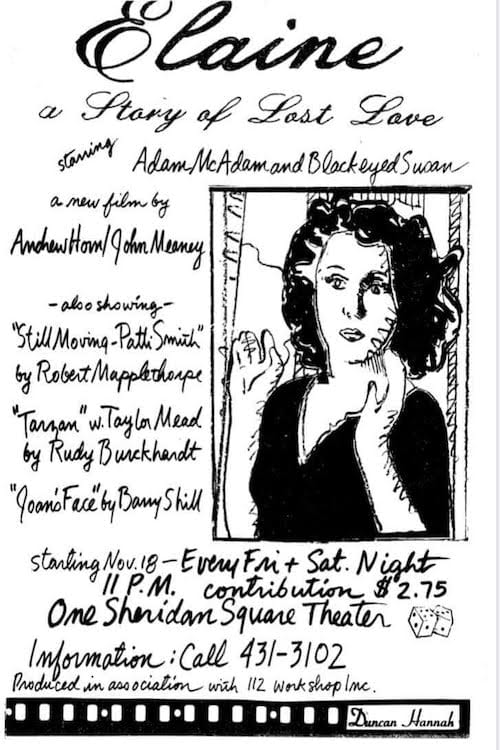 Elaine
a Story of Lost Love
starring Adam McAdam and Blackeyed Susan
a new film by
Andrew Horn/John Meaney
- also showing -
"Still Moving - Patti Smith"
by Robert Mapplethorpe
"Tarzan" w. Taylor Mead
by Rudy Burckhardt
"Joan's Face" by Barry Shill
starting Nov. 18 - Every Fri + Sat. Night
11 P.M. contribution $2.75
One Sheridan Square Theater
Information: Call 431-3102
Produced in association with 112 Workshop Inc.
Duncan Hannah